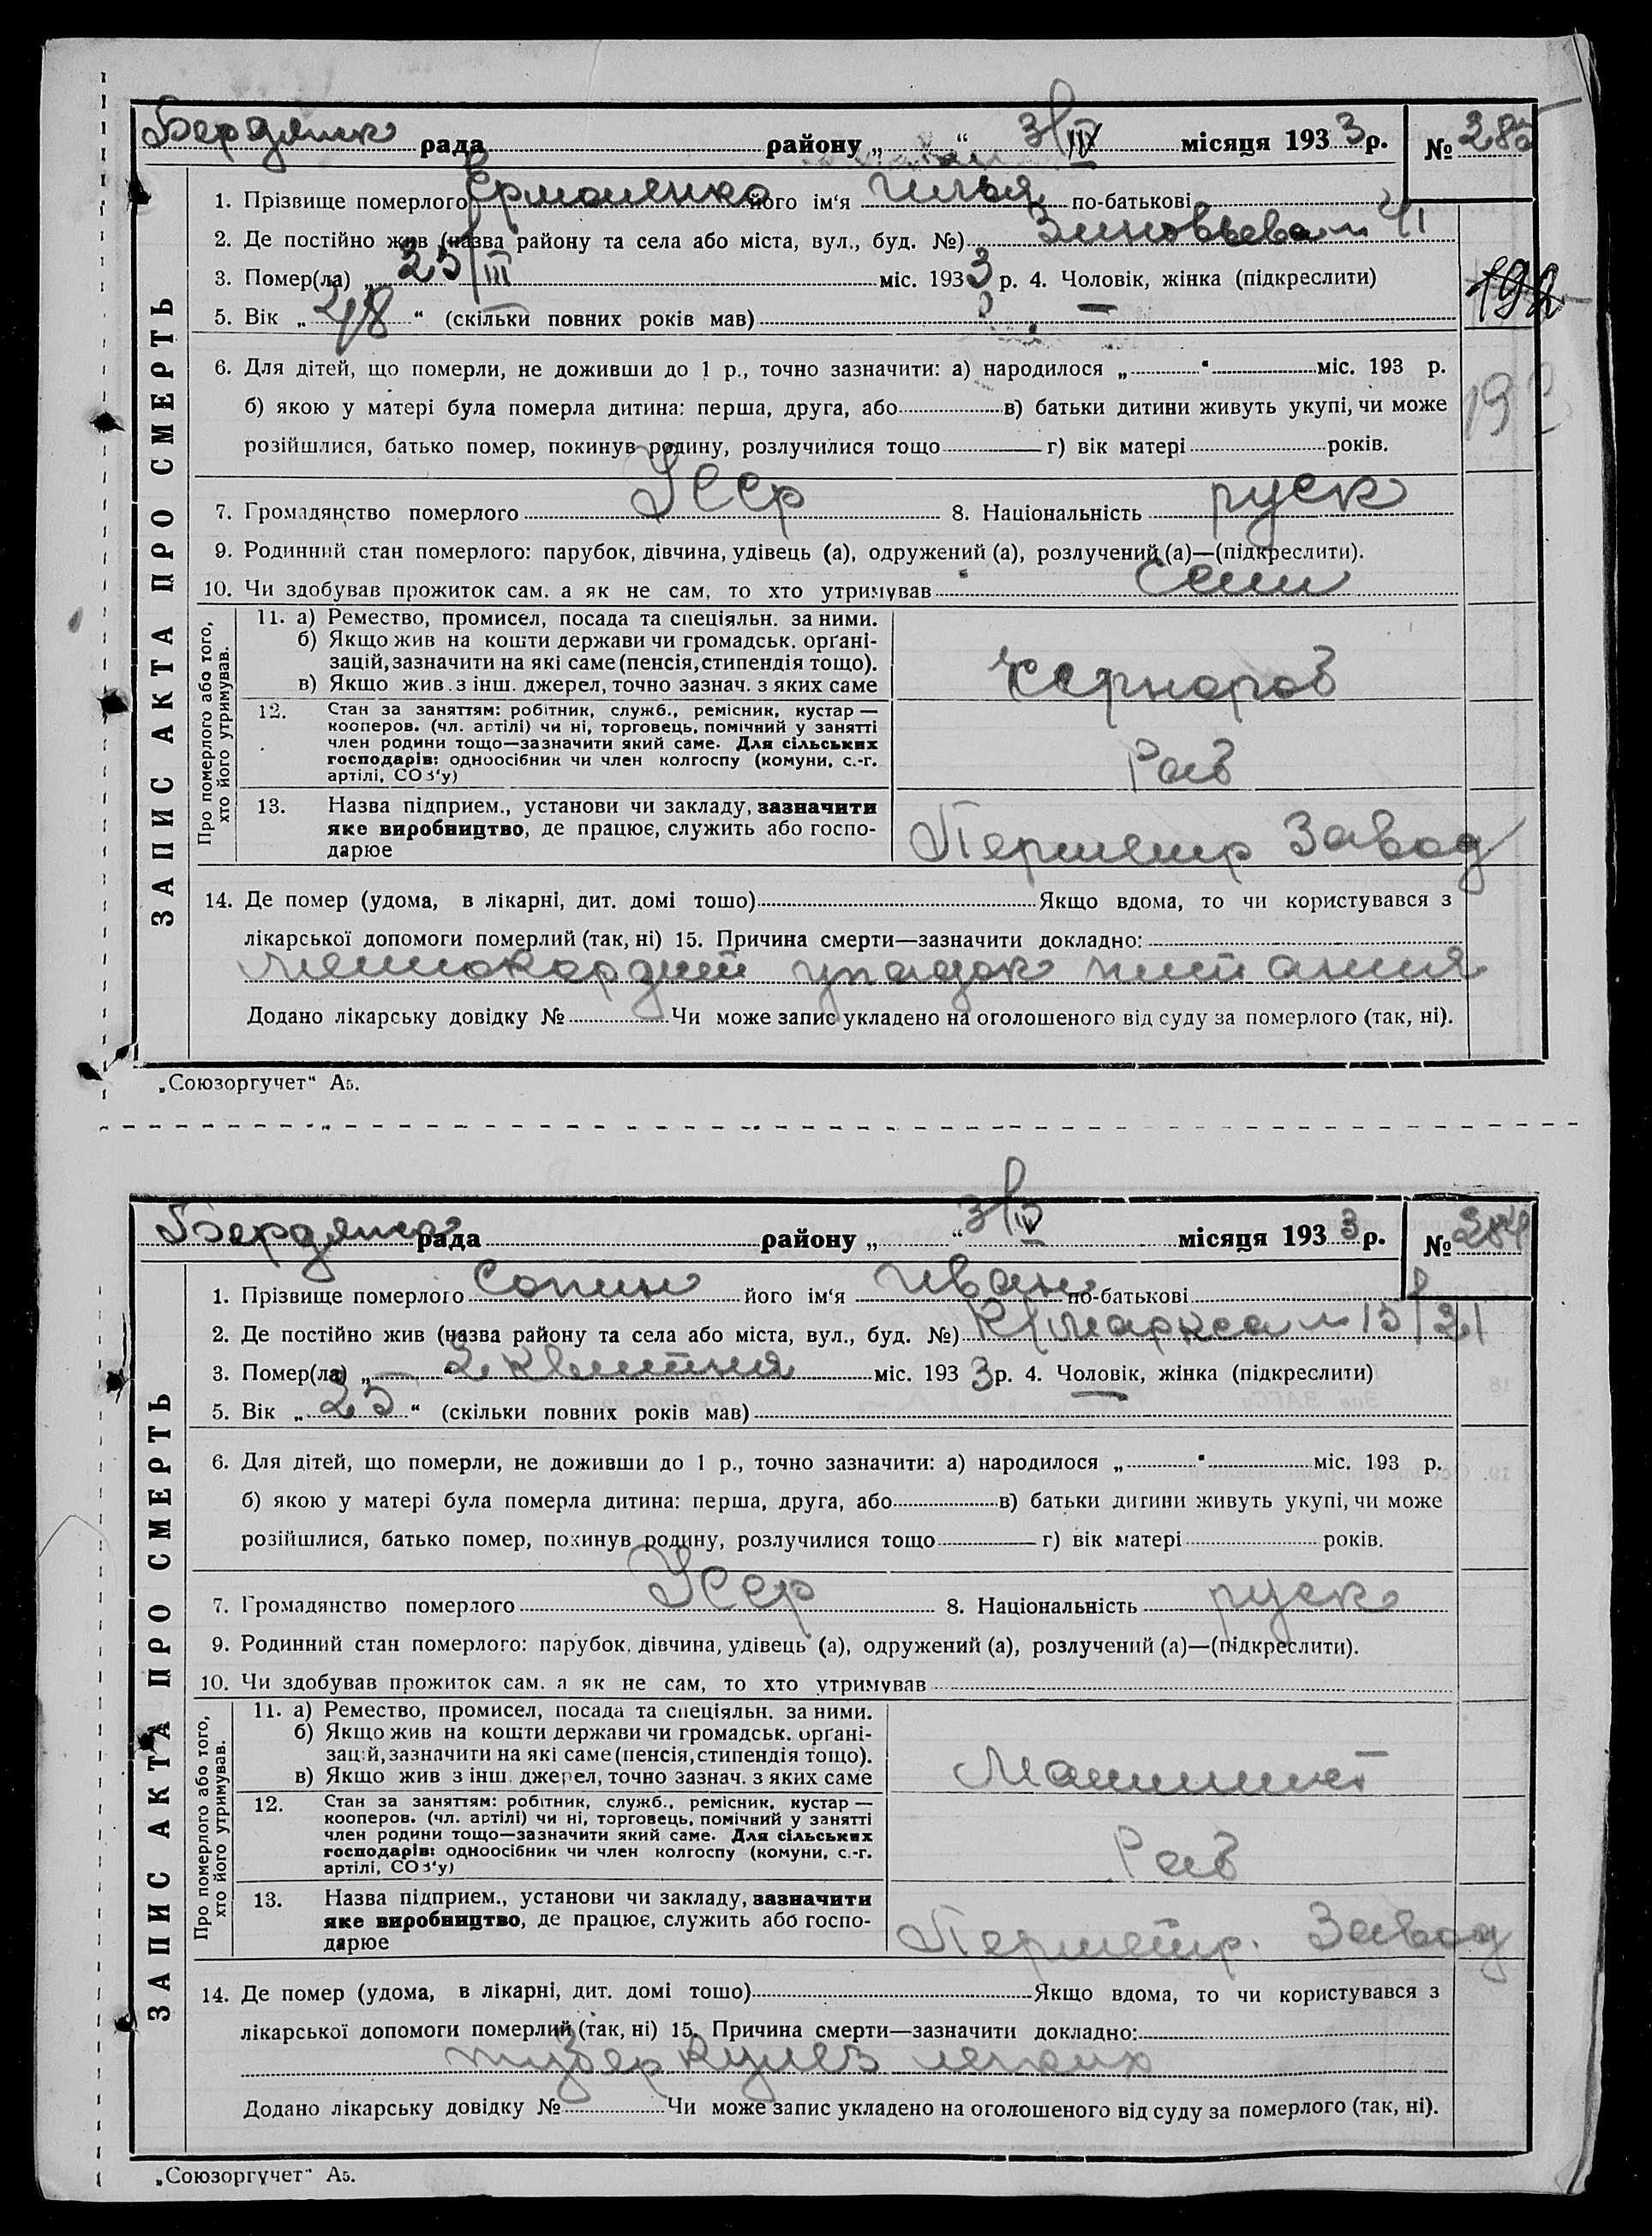 Бердянск рада району „ “ 3/IV місяця 1933 р. № 285
1. Прізвище померлого Ермоленко його ім‘я Илья по-батькові
2. Де постійно жив (назва району та села або міста, вул., буд. №) Зиновьева 41
3. Помер(ла) „ 25/III міс. 1933 р. 4. Чоловік, жінка (підкреслити)
5. Вік „ 48 “ (скільки повних років мав)
192
6. Для дітей, що померли, не доживши до 1 р., точно зазначити: а) народилося „ “ міс. 193 р.
б) якою у матері була померла дитина: перша, друга, або в) батьки дитини живуть укупі, чи може
розійшлися, батько помер, покинув родину, розлучилися тощо г) вік матері років.
7. Громадянство померлого УССР 8. Національність руск
9. Родинний стан померлого: парубок, дівчина, удівець (а), одружений (а), розлучений (а)—(підкреслити).
10. Чи здобував прожиток сам. а як не сам, то хто утримував сам
ЗАПИС АКТА ПРО СМЕРТЬ
Про померлого або того, хто його утримував.
11. а) Ремество, промисел, посада та спеціяльн. за ними.
б) Якщо жив на кошти держави чи громадськ. органі-
зацій, зазначити на які саме (пенсія, стипендія тощо).
в) Якщо жив. з інш. джерел, точно зазнач. з яких саме
12. Стан за заняттям: робітник, служб., ремісник, кустар —
кооперов. (чл. артілі) чи ні, торговець, помічний у занятті
член родини тощо—зазначити який саме. Для сільських
господарів: одноосібник чи член колгоспу (комуни, с.-г.
артілі, СОЗ‘у)
Раб
13. Назва підприєм., установи чи закладу, зазначити
яке виробництво, де працює, служить або госпо-
дарює
Першетр Завод
14. Де помер (удома, в лікарні, дит. домі тощо) Якщо вдома, то чи користувався з
лікарської допомоги померлий (так, ні) 15. Причина смерти—зазначити докладно:
миокардит упадок питания
Додано лікарську довідку № Чи може запис укладено на оголошеного від суду за померлого (так, ні).
„Союзоргучет“ А5.
Бердянск рада району „ “ 3/IV місяця 1933 р. № 284
1. Прізвище померлого Сопин його ім‘я Иван по-батькові
2. Де постійно жив (назва району та села або міста, вул., буд. №) К/Маркса 15/21
3. Помер(ла) „ “ 2 квитня міс. 1933 р. 4. Чоловік, жінка (підкреслити)
5. Вік „ 25 “ (скільки повних років мав)
6. Для дітей, що померли, не доживши до 1 р., точно зазначити: а) народилося „ “ міс. 193 р.
б) якою у матері була померла дитина: перша, друга, або в) батьки дитини живуть укупі, чи може
розійшлися, батько помер, покинув родину, розлучилися тощо г) вік матері років.
7. Громадянство померлого УССР 8. Національність руск
9. Родинний стан померлого: парубок, дівчина, удівець (а), одружений (а), розлучений (а)—(підкреслити).
10. Чи здобував прожиток сам. а як не сам, то хто утримував
ЗАПИС АКТА ПРО СМЕРТЬ
Про померлого або того, хто його утримував.
11. а) Ремество, промисел, посада та спеціяльн. за ними.
б) Якщо жив на кошти держави чи громадськ. органі-
зацій, зазначити на які саме (пенсія, стипендія тощо).
в) Якщо жив з інш. джерел, точно зазнач. з яких саме
Машинист
12. Стан за заняттям: робітник, служб., ремісник, кустар —
кооперов. (чл. артілі) чи ні, торговець, помічний у занятті
член родини тощо—зазначити який саме. Для сільських
господарів: одноосібник чи член колгоспу (комуни, с.-г.
артілі, СОЗ‘у)
Раб
13. Назва підприєм., установи чи закладу, зазначити
яке виробництво, де працює, служить або госпо-
дарює
Першетр. Завод
14. Де помер (удома, в лікарні, дит. домі тощо) Якщо вдома, то чи користувався з
лікарської допомоги померлий (так, ні) 15. Причина смерти—зазначити докладно:
туберкулез легких
Додано лікарську довідку № Чи може запис укладено на оголошеного від суду за померлого (так, ні).
„Союзоргучет“ А5.